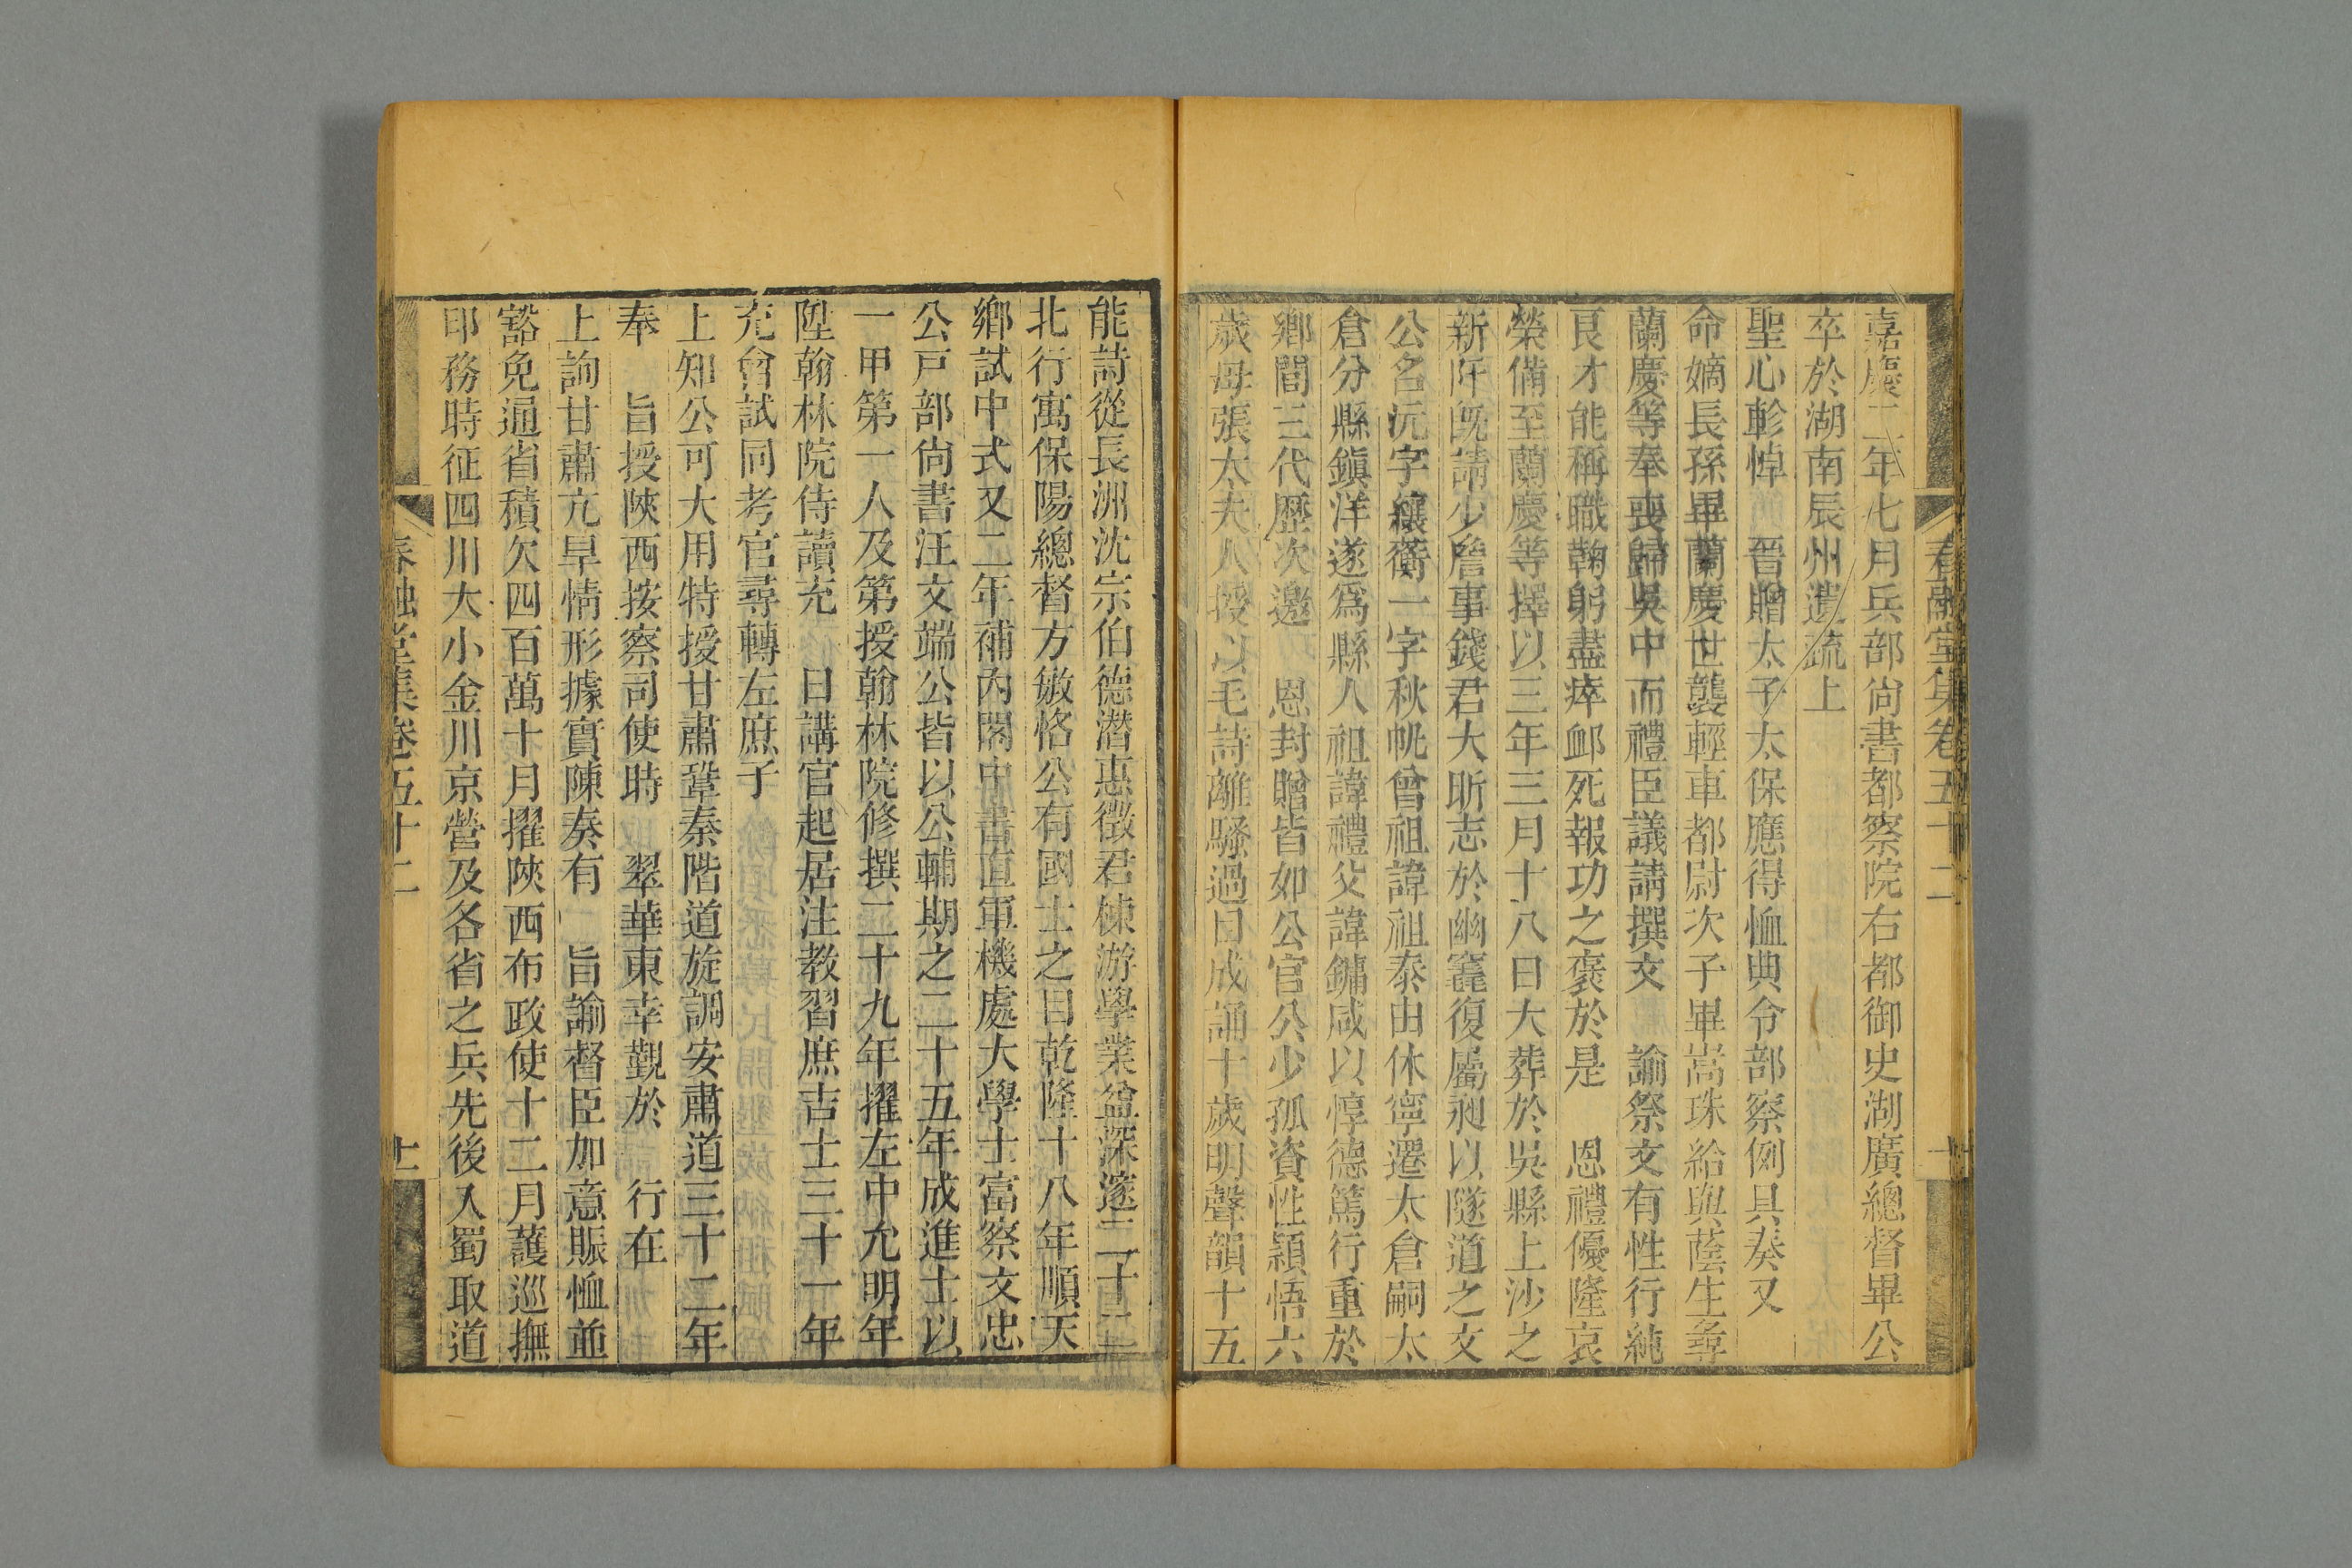 春融堂集卷五十二
嘉慶二年七月兵部尙書都察院右都御史湖廣總督畢公
卒於湖南辰州遺疏上
聖心軫悼　晉贈太子太保應得恤典令部察例具奏又
命嫡長孫畢蘭慶世襲輕車都尉次子畢嵩珠給與蔭生尋
蘭慶等奉喪歸吳中而禮臣議請撰文　諭祭文有性行純
良才能稱職鞠躬盡瘁卹死報功之褒於是　恩禮優隆哀
榮備至蘭慶等擇以三年三月十八日大葬於吳縣上沙之
新阡旣請少詹事錢君大昕志於幽竁復屬昶以隧道之文
公名沅字纕蘅一字秋帆曾祖諱祖泰由休寧遷太倉嗣太
倉分縣鎭洋遂爲縣人祖諱禮父諱鏞咸以惇德篤行重於
鄕閭三代歷次邀　恩封贈皆如公官公少孤資性穎悟六
歲母張太夫人授以毛詩離騷過目成誦十歲明聲韻十五
能詩從長洲沈宗伯德潛惠徵君棟游學業益深邃二十二
北行寓保陽總督方敏恪公有國士之目乾隆十八年順天
鄕試中式又二年補內閣中書直軍機處大學士富察文忠
公戸部尙書汪文端公皆以公輔期之二十五年成進士以
一甲第一人及第授翰林院修撰二十九年擢左中允明年
陞翰林院侍讀充　日講官起居注教習庶吉士三十一年
充會試同考官尋轉左庶子
上知公可大用特授甘肅鞏秦階道旋調安肅道三十二年
奉　旨授陝西按察司使時　翠華東幸覲於　行在
上詢甘肅亢旱情形據實陳奏有　旨諭督臣加意賑恤並
豁免通省積欠四百萬十月擢陝西布政使十二月護巡撫
印務時征四川大小金川京營及各省之兵先後入蜀取道
春融堂集卷五十二